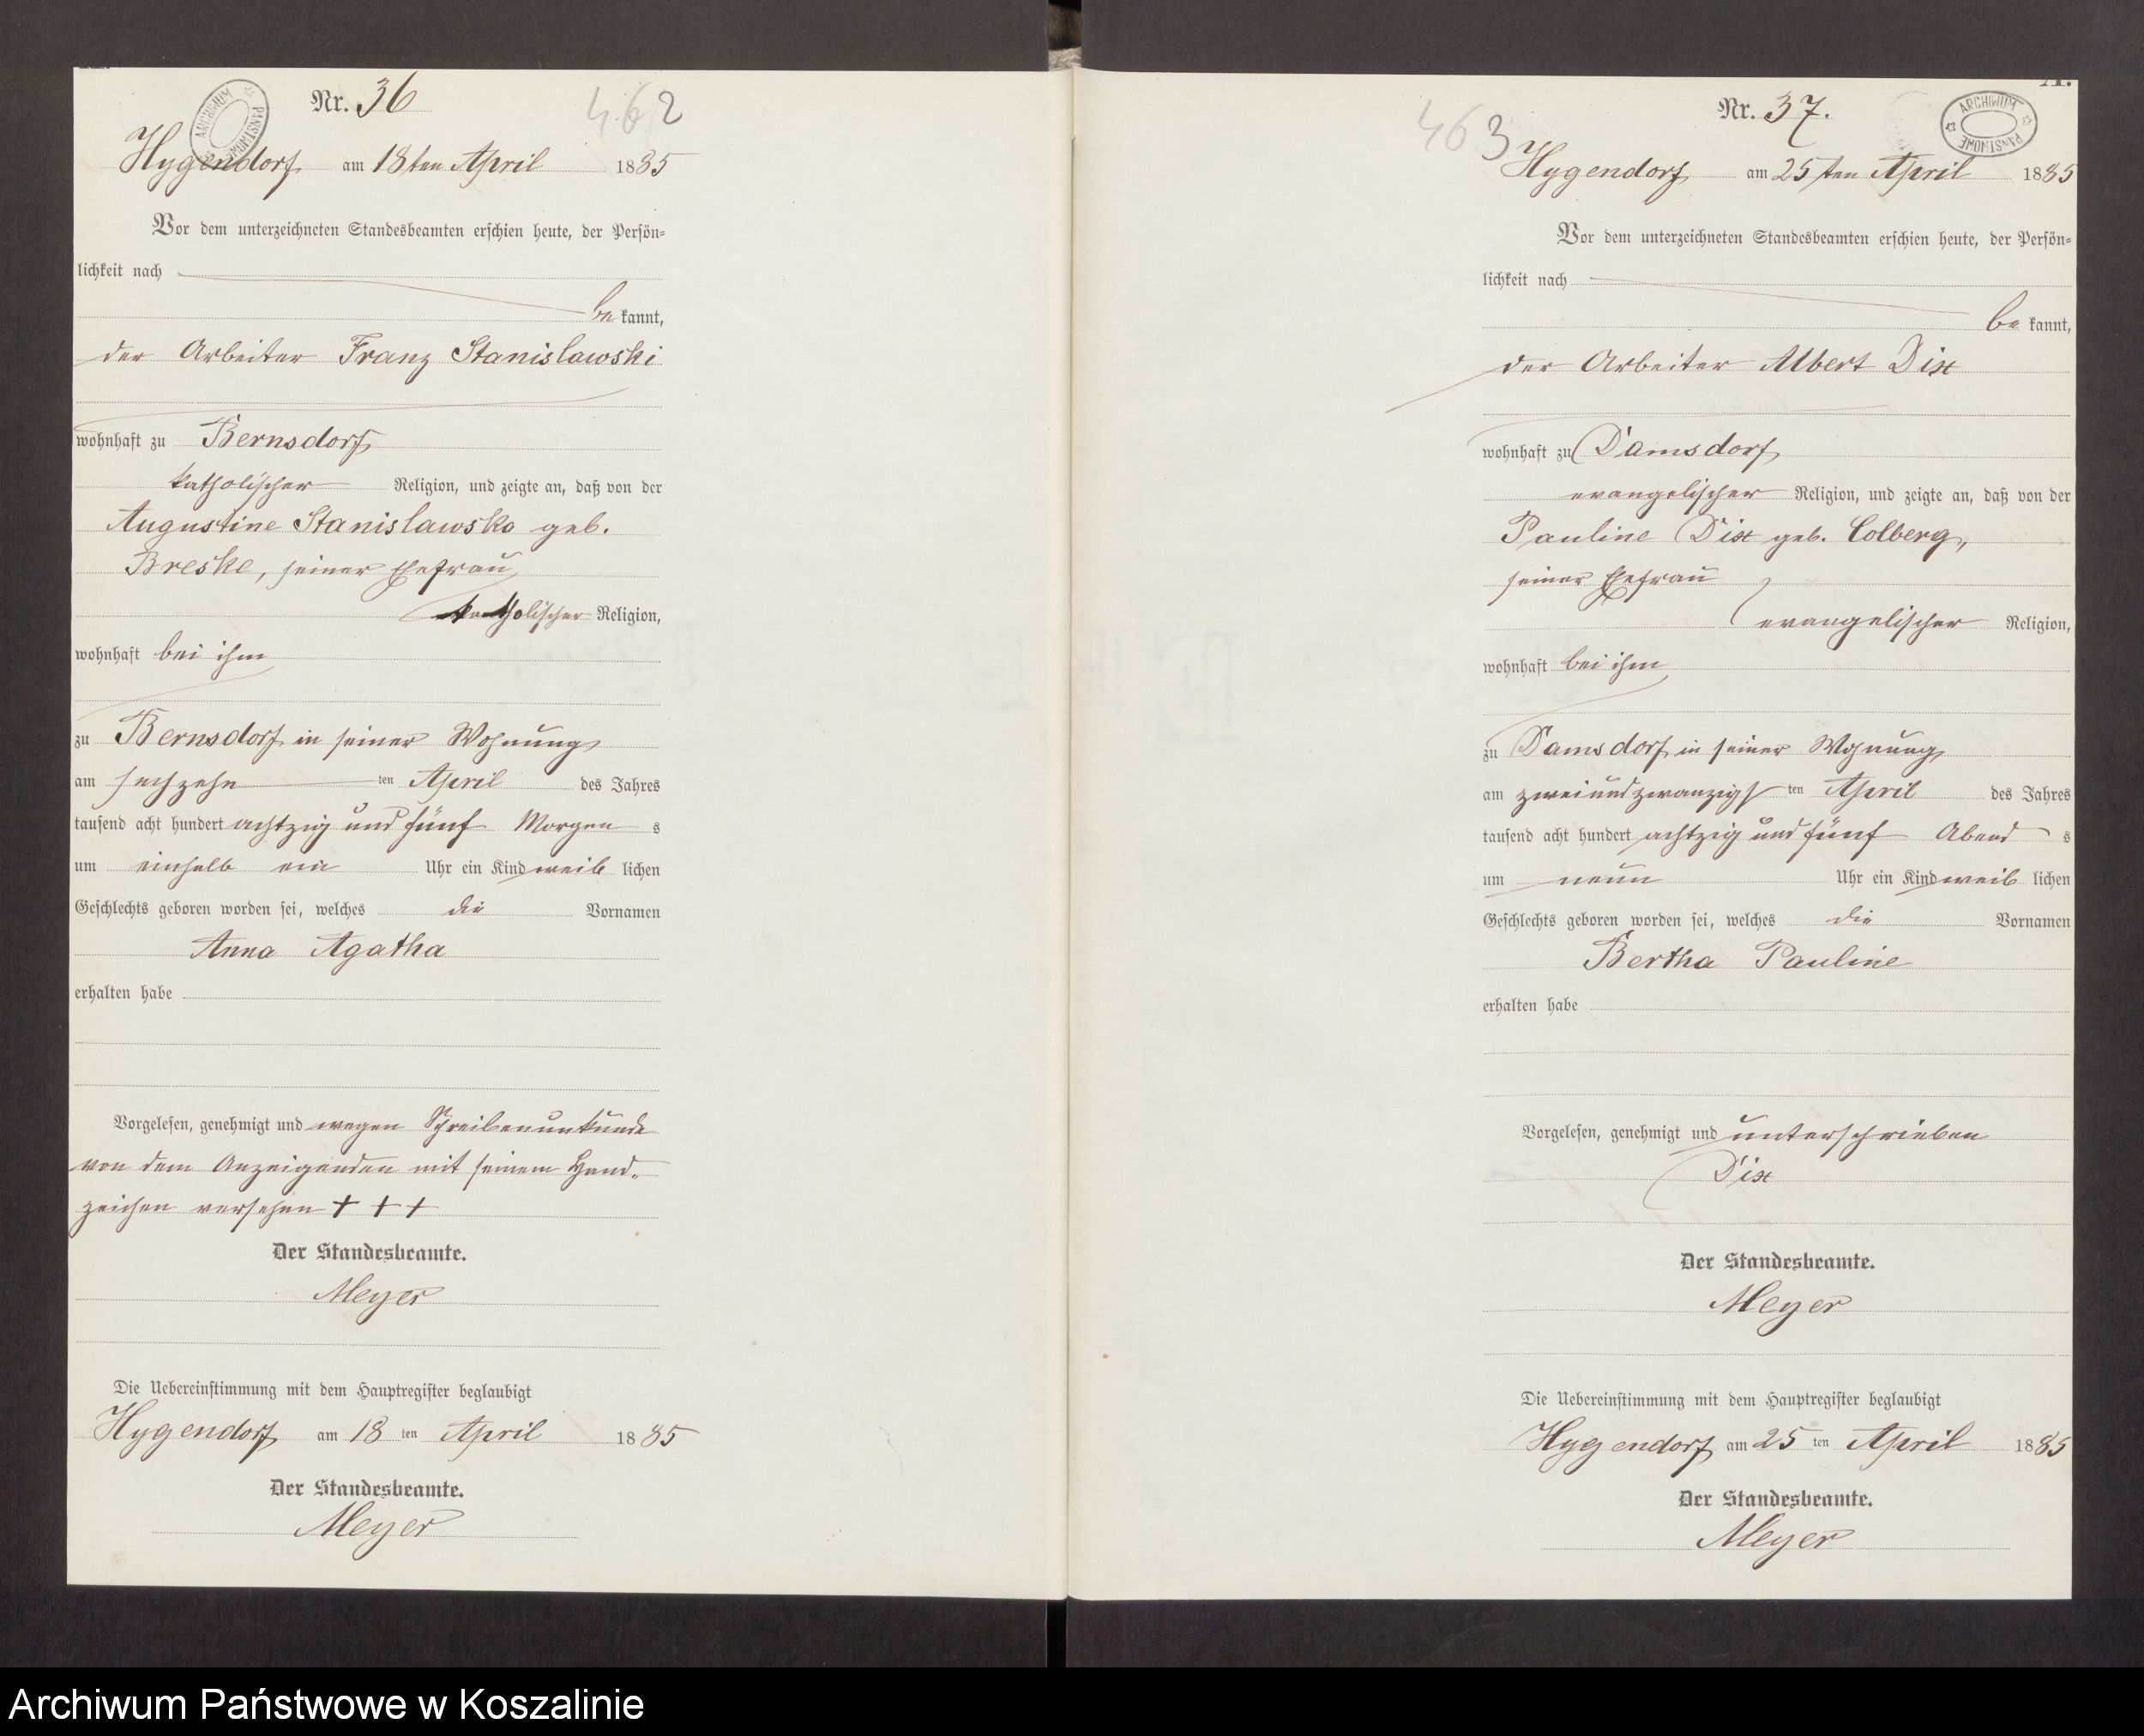 Nr. 36
462
ARCHIWUM PAŃSTWOWE
Hygendorf am 18ten April 1885
Vor dem unterzeichneten Standesbeamten erschien heute, der Persön-
lichkeit nach
be kannt,
der Arbeiter Franz Stanislawski
wohnhaft zu Bernsdorf
katholischer Religion, und zeigte an, daß von der
Augustine Stanislawska geb.
Breske, seiner Ehefrau
katholischer Religion,
wohnhaft bei ihm
zu Bernsdorf in seiner Wohnung
am sechzehn ten April des Jahres
tausend acht hundert achtzig und fünf Morgen s
um einhalb ein Uhr ein Kind weib lichen
Geschlechts geboren worden sei, welches die Vornamen
Anna Agatha
erhalten habe
Vorgelesen, genehmigt und wegen Schreibensunkunde
von dem Anzeigenden mit seinem Hand-
zeichen versehen + + +
Der Standesbeamte.
Meyer
Die Uebereinstimmung mit dem Hauptregister beglaubigt
Hygendorf am 18 ten April 1885
Der Standesbeamte.
Meyer
A.
Nr. 37.
463
ARCHIWUM PAŃSTWOWE
Hygendorf am 25ten April 1885
Vor dem unterzeichneten Standesbeamten erschien heute, der Persön-
lichkeit nach
be kannt,
der Arbeiter Albert Dix
wohnhaft zu Damsdorf
evangelischer Religion, und zeigte an, daß von der
Pauline Dix geb. Colberg,
seiner Ehefrau
evangelischer Religion,
wohnhaft bei ihm
zu Damsdorf in seiner Wohnung
am zweiundzwanzigs ten April des Jahres
tausend acht hundert achtzig und fünf Abend s
um neun Uhr ein Kind weib lichen
Geschlechts geboren worden sei, welches die Vornamen
Bertha Pauline
erhalten habe
Vorgelesen, genehmigt und unterschrieben
Dix
Der Standesbeamte.
Meyer
Die Uebereinstimmung mit dem Hauptregister beglaubigt
Hygendorf am 25 ten April 1885
Der Standesbeamte.
Meyer
Archiwum Państwowe w Koszalinie